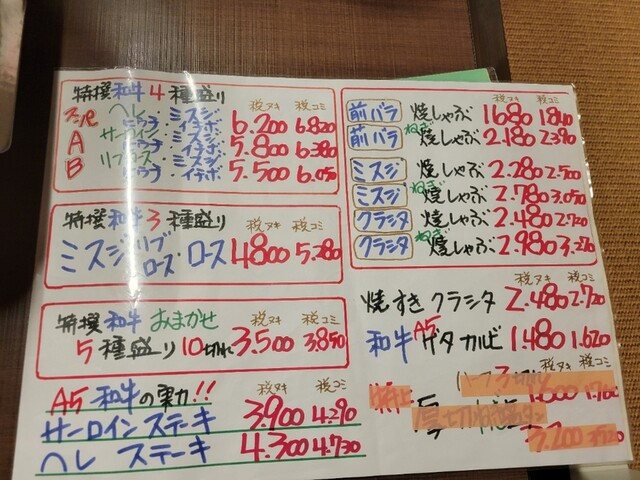 特撰和牛4種盛り 税ヌキ 税コミ
ヘレ ミスジ
イチボ 6.200 6.820
A サーロイン ミスジ
イチボ 5.800 6.380
B リブロース ミスジ
イチボ 5.500 6.050
特撰和牛3種盛り 税ヌキ 税コミ
ミスジ リブロース・ロース 4800 5.280
特撰和牛おまかせ 税ヌキ 税コミ
5種盛り10切れ 3.500 3.850
A5和牛の実力!! 税ヌキ 税コミ
サーロインステーキ 3.900 4.290
ヘレ ステーキ 4.300 4.730
税ヌキ 税コミ
前バラ 焼しゃぶ 1680 1840
前バラ ねぎ焼しゃぶ 2.180 2.390
ミスジ 焼しゃぶ 2.280 2.500
ミスジ ねぎ焼しゃぶ 2.780 3.050
クラシタ 焼しゃぶ 2.480 2.720
クラシタ ねぎ焼しゃぶ 2.980 3.270
税ヌキ 税コミ
焼すきクラシタ 2.480 2.720
和牛A5ゲタカルビ 1.480 1.620
税ヌキ 税コミ